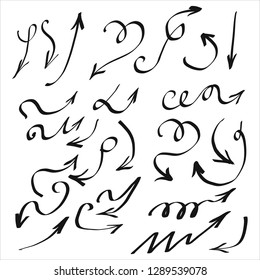 shutterstock.com · 1289539078